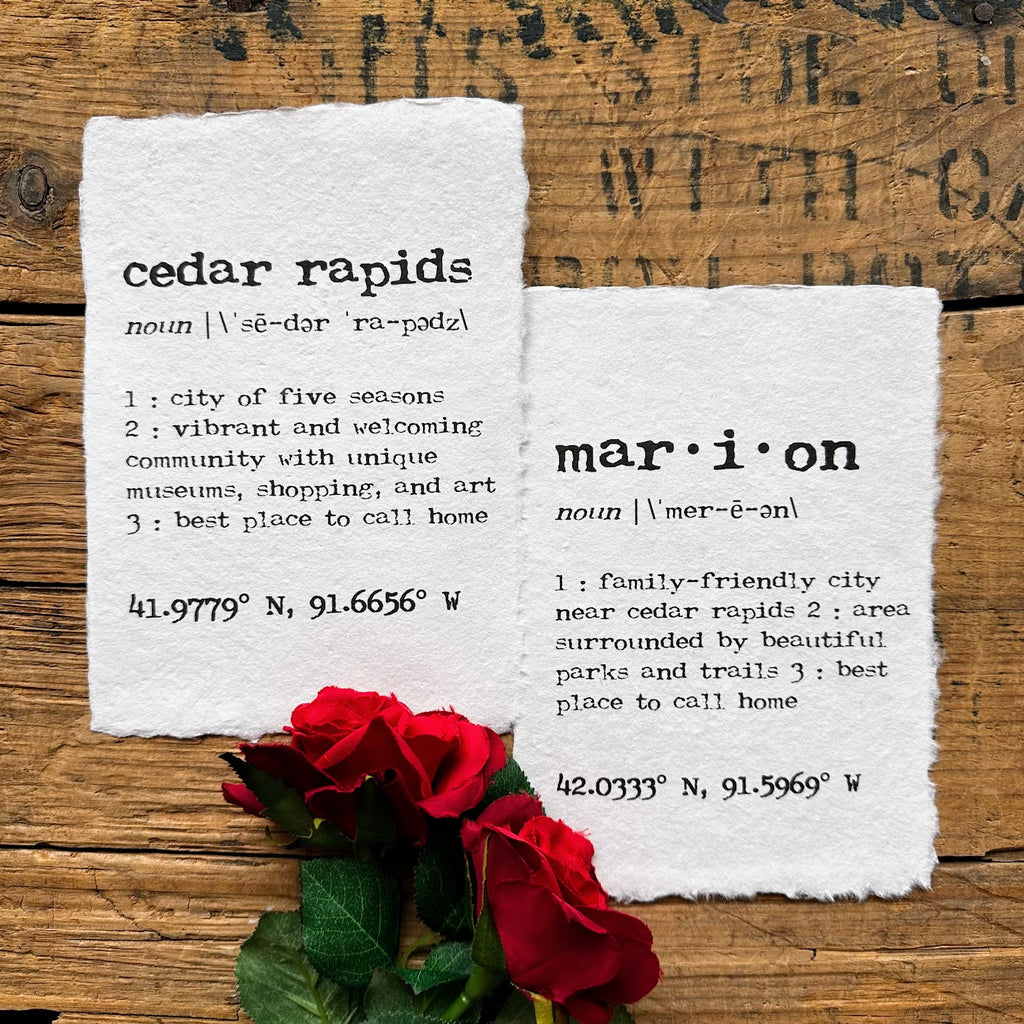 WITH
cedar rapids
noun | \ˈsē-dər ˈra-pədz\
1 : city of five seasons
2 : vibrant and welcoming
community with unique
museums, shopping, and art
3 : best place to call home
41.9779° N, 91.6656° W
mar·i·on
noun | \ˈmer-ē-ən\
1 : family-friendly city
near cedar rapids 2 : area
surrounded by beautiful
parks and trails 3 : best
place to call home
42.0333° N, 91.5969° W